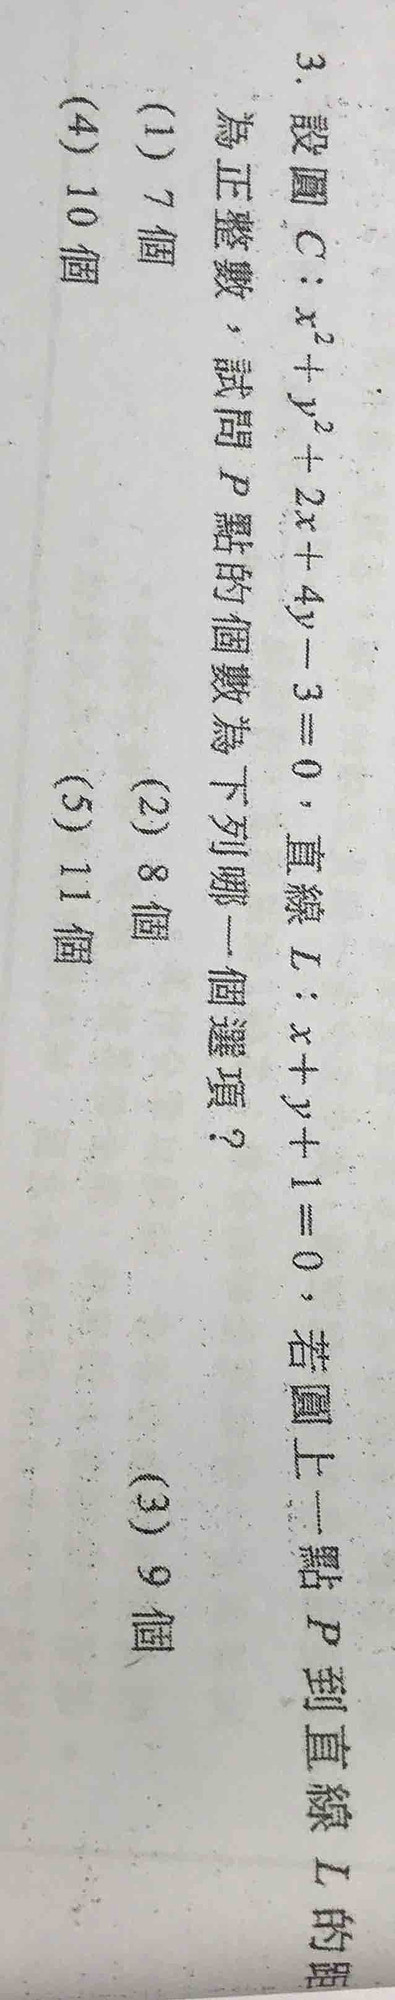 3. 設圓 C：x²+y²+2x+4y−3=0，直線 L：x+y+1=0，若圓上一點 P 到直線 L 的距
為正整數，試問 P 點的個數為下列哪一個選項？
(1) 7 個 (2) 8 個 (3) 9 個
(4) 10 個 (5) 11 個